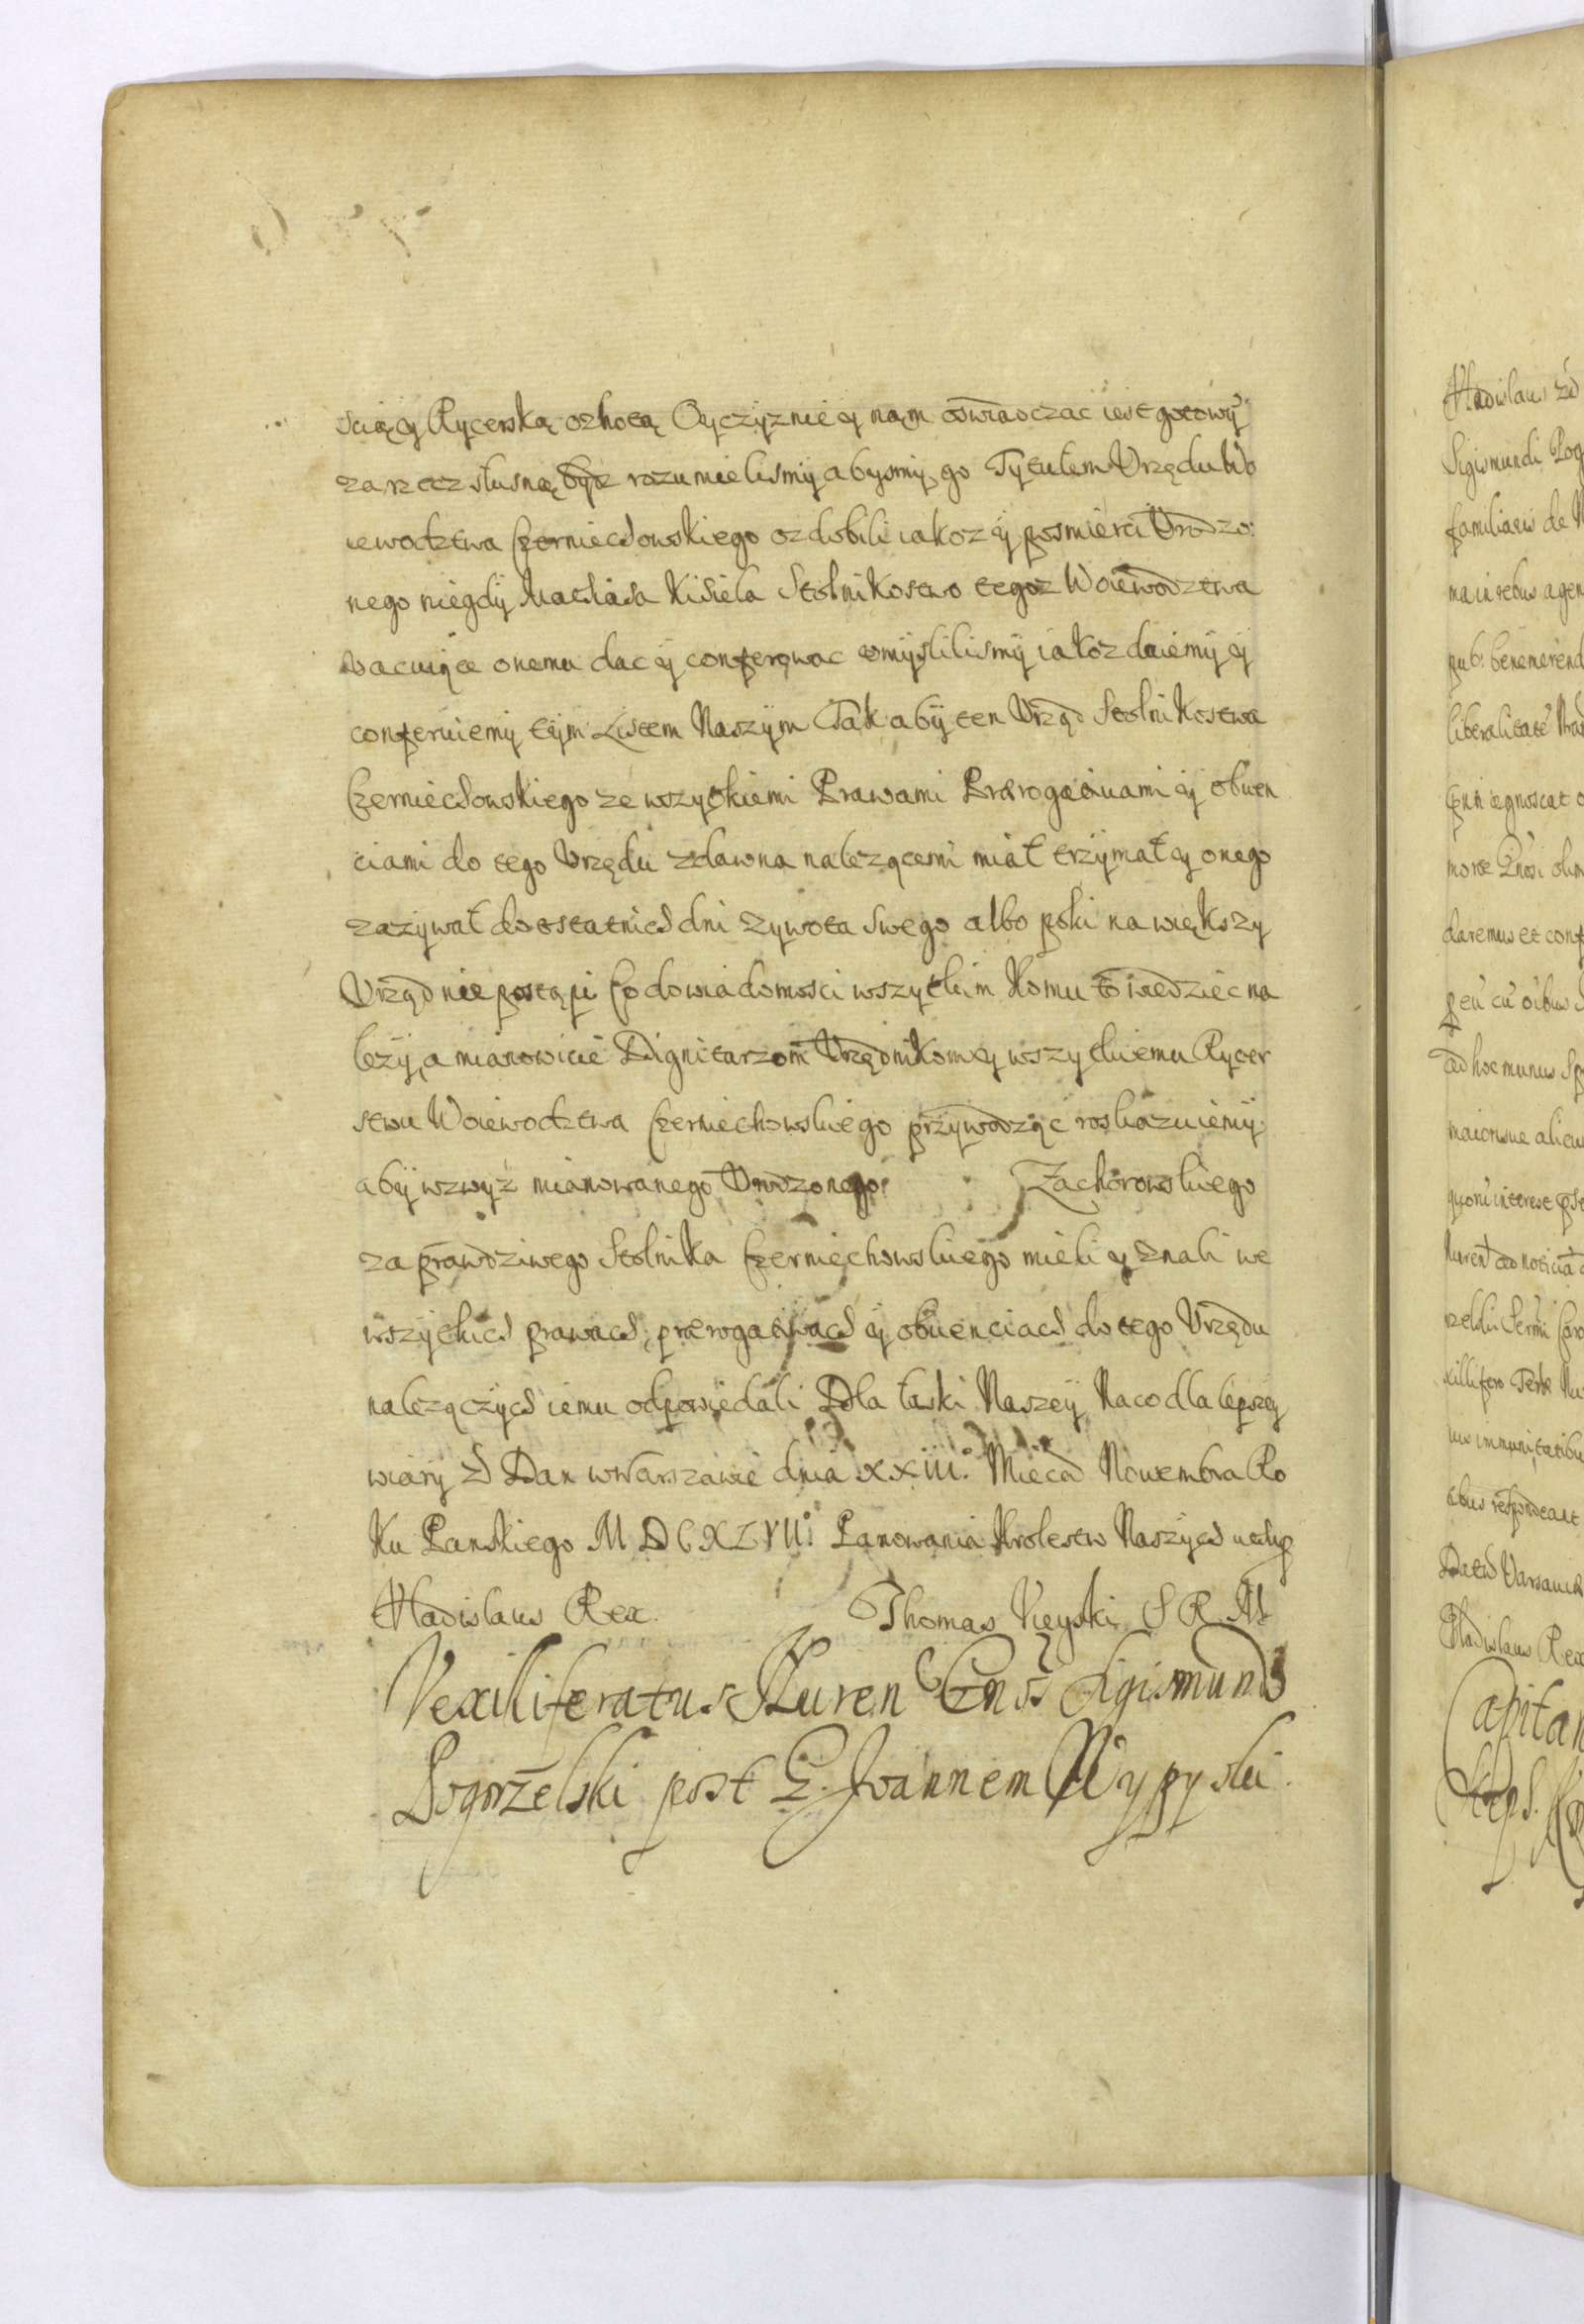 scią y Rycerską ozhotą Oyczyznie y nąm oswiadczac iest gotowy
za rzecz słusną być rozumielismy abysmy go Tytułem Vrzędu Wo
iewodztwa Czerniechowskiego ozdobili iakoz y posmierci Vrodzo:
nego niegdy Mathiasa Kisiela Stolnikostwo tegoz Woiewodztwa
wacuiące onemu dac y conferowac vmyslilismy iakoz daiemy y
conferuiemy tym Listem Naszym Tak aby ten Vrząd Stolnikostwa
Czerniechowskiego ze wszytkiemi Prawami Prærogatiuami y obuen
ciami do tego Vrzędu zdawna nalezącemi miał trzymał y onego
zazywał do ostatnich dni zywota swego albo poki na większy
Vrząd nie postąpi Co do wiadomosci wszytkim Komu to wiedziec na
lezy, a mianowicie Dignitarzom Vrzędnikom y wszytkiemu Rycer
stwu Woiewodztwa Czerniechowskiego przywodząc roskazuiemy
aby wzwyz mianowanego Vrodzonego Zachorowskiego
za prawdziwego Stolnika Czerniechowskiego mieli y znali we
wszytkich prawach, prærogatiwach y obuenciach do tego Vrzędu
nalezączych iemu odpowiedali Dla łaski Naszey Na co dla lepszey
wiary &c Dan w Warszawie dnia XXIII. Mieca Nouembra Ro
Ku Panskiego MDCXLVII: Panowania Krolestw Naszych ut sup
Vladislaus Rex. Thomas Vieyski S R M
Vexilliferatus Nuren Gnoso Sigismundo
Pogorzelski post G. Joannem Wypyski.
Vladislaus
Sigismundi Pog
familiaris de
ma in rebus agen
pub: benemerend
liberalitatē
mortē Gnosi olim
daremus et conf
ad hoc munus
quorū interest
Datū Varsauiæ
Vladislaus Rex
Capitan